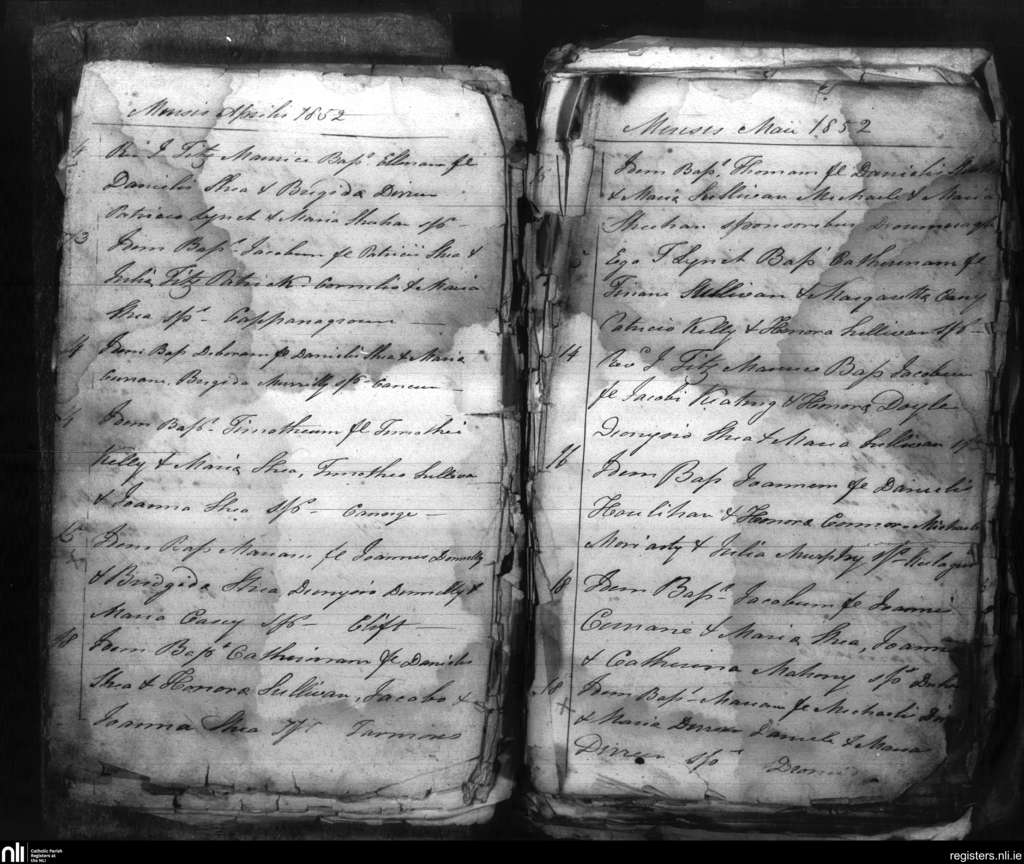 Mensis Aprilis 1852
Rev J Fitz Maurice Bapt. Ellenam fe
Danielis Shea & Brigida Dirren
Patricio Lynch & Maria Shehan sprs
13 Idem Bapt. Jacobum fe Patricii Shea &
Julia Fitz Patrick Cornelio & Maria
Shea sprs Cappanagroun
14 Idem Bap Deboram fe Danielis Shea & Maria
Brigida sprs
14 Idem Bapt. Timotheum fe Timothei
Kelly & Maria Shea, Timotheo Sulliva
& Joanna Shea sprs
15 Idem Bap Mariam fe Joannis Donnelly
& Bridgida Shea Dionysio Donnelly &
Maria Casey sprs Clift
18 Idem Bapt. Catherinam fe Danielis
Shea & Honora Sullivan, Jacobo &
Joanna Shea sprs Tarmons
Mensis Maii 1852
Idem Bapt. Thomam fe Danielis Shea
& Maria Sullivan Michaele & Maria
Sheehan sponsoribus
Ego T Lynch Bapt Catherinam fe
Sullivan & Margaretta Casey
Patricio Kelly & Honora Sullivan sprs
14 Revd J Fitz Maurice Bap Jacobum
fe Jacobi Keating & Honora Doyle
Dionysio Shea & Maria Sullivan sprs
16 Idem Bap Joannem fe Danielis
Houlihan & Honora Connor Michaele
Moriarty & Julia Murphy sprs
18 Idem Bapt. Jacobum fe Joannis
& Maria Shea, Joanne
& Catherina Mahony sprs
18 Idem Bapt. Mariam fe Michaelis
& Maria Dirren Daniele & Maria
Dirren sprs
nli
Catholic Parish
Registers at
the NLI
registers.nli.ie